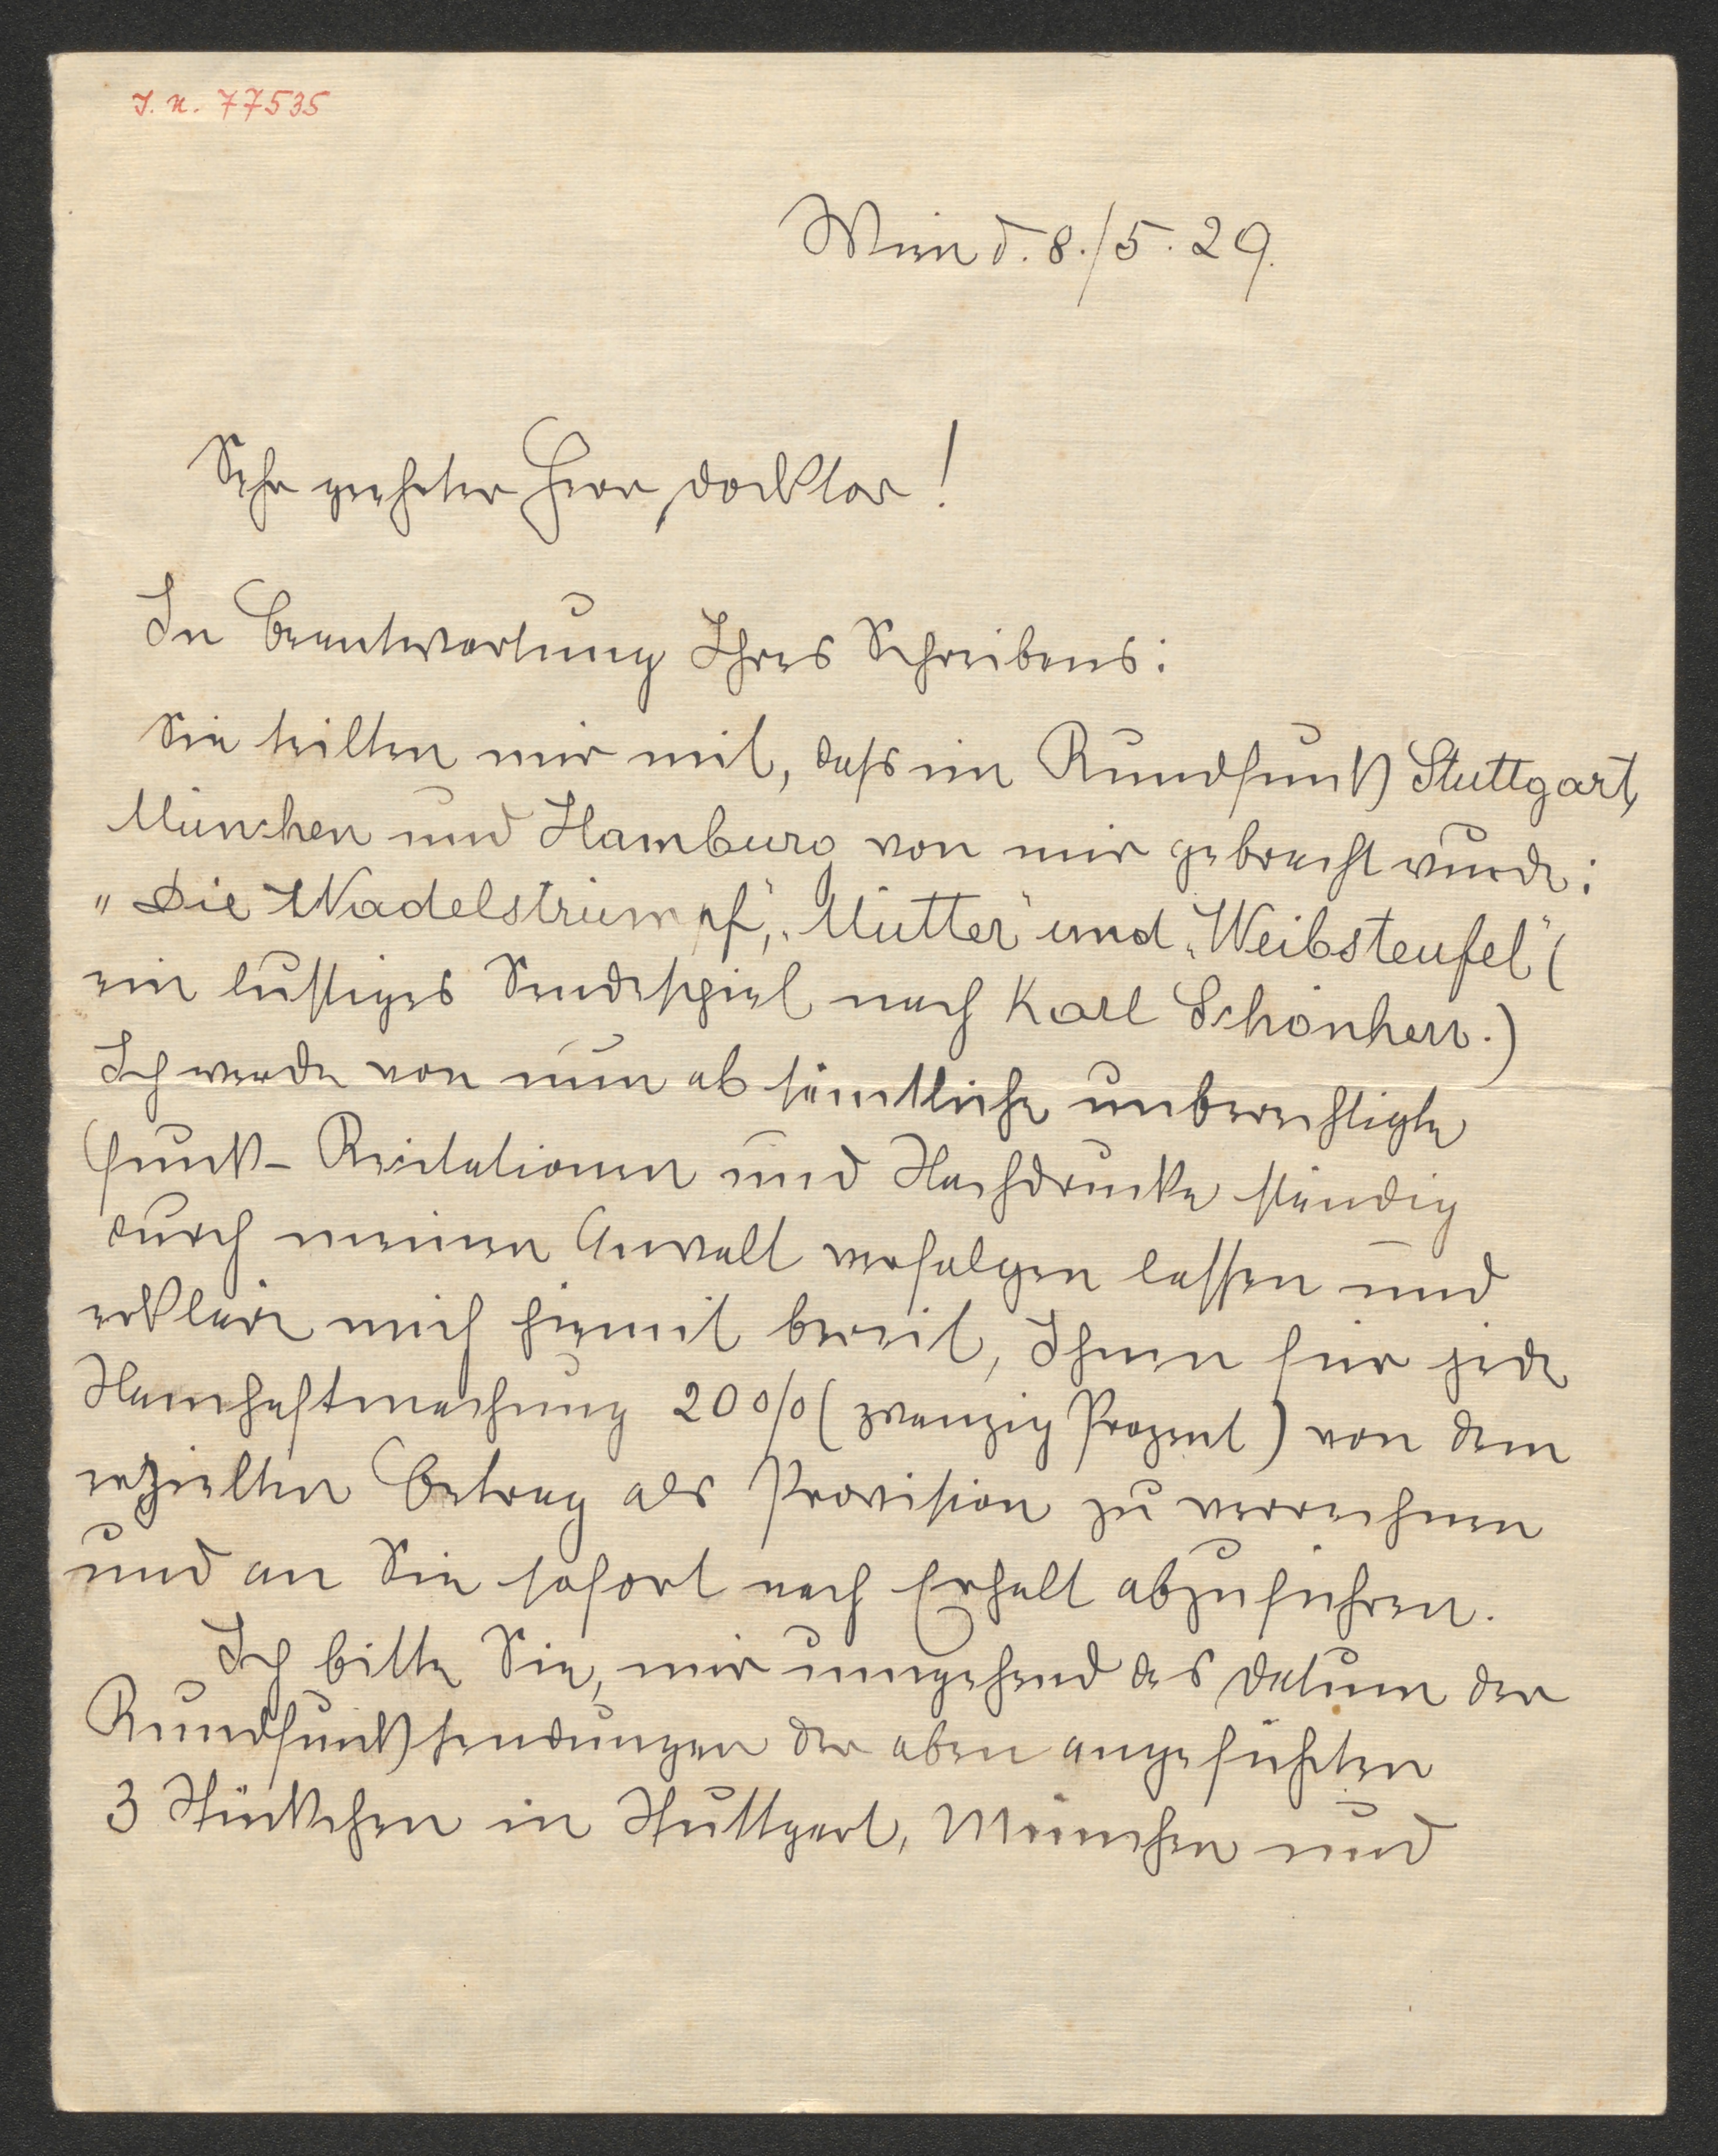 I. N. 77535
Wien d. 8./5. 29.
Sehr geehrter Herr Docktor!
In Beantwortung Ihres Schreibens:
Sie teilten mir mit, dass im Rundfunk Stuttgart,
München und Hamburg von mir gebracht wurde:
„Die Wadelstrümpf", „Mutter" und „Weibsteufel" (
ein lustiges Sendespiel nach Karl Schönherr.)
Ich werde von nun ab sämtliche unberechtigte
Funk-Rezitationen und Nachdrucke ständig
durch meinen Anwalt verfolgen lassen und
erkläre mich hiemit bereit, Ihnen für jede
Namhaftmachung 20% (zwanzig Prozent) von dem
erzielten Betrag als Provision zu verrechnen
und an Sie sofort nach Erhalt abzuführen.
Ich bitte Sie, mir umgehend das Datum der
Rundfunksendungen der oben angeführten
3 Stückchen in Stuttgart, München und